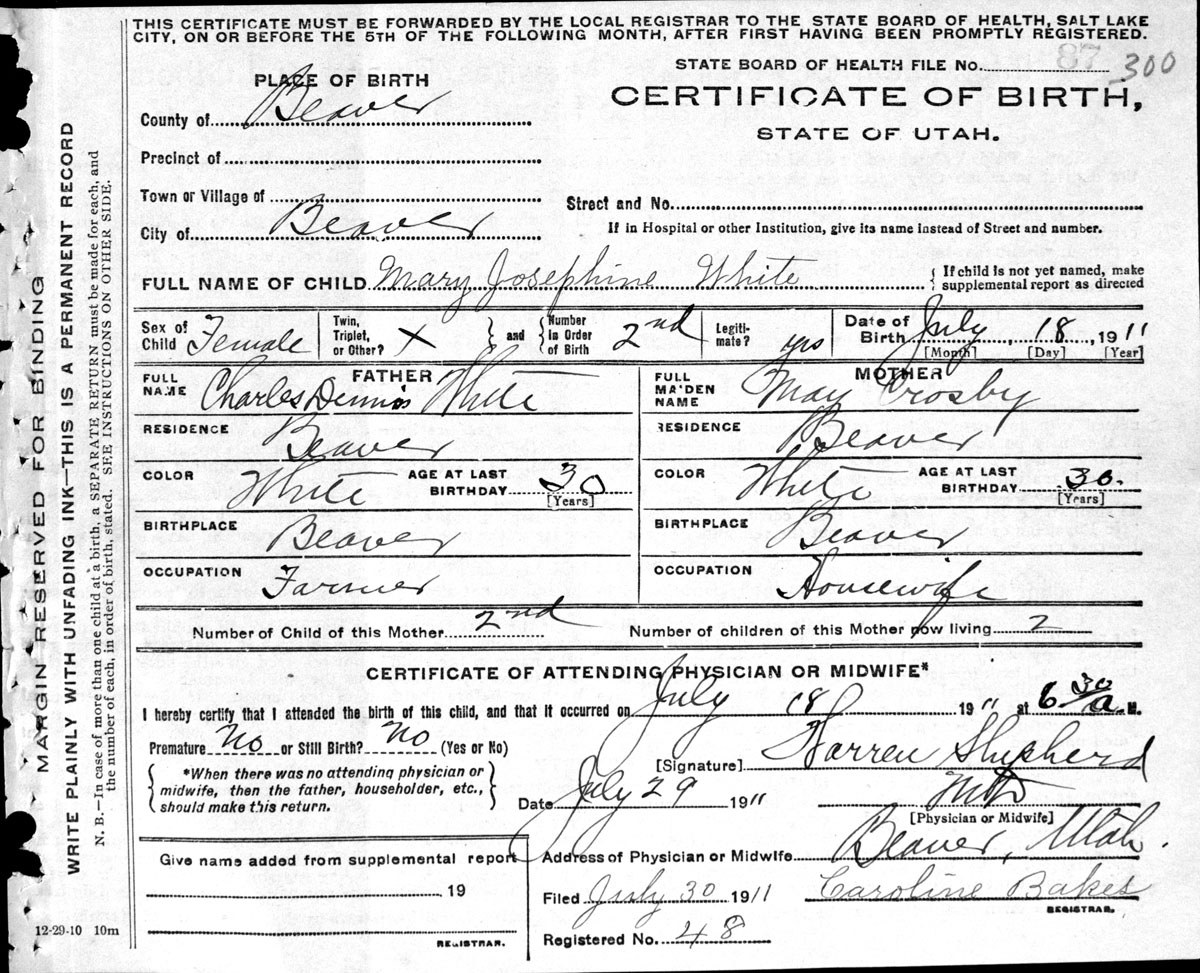 THIS CERTIFICATE MUST BE FORWARDED BY THE LOCAL REGISTRAR TO THE STATE BOARD OF HEALTH, SALT LAKE
CITY, ON OR BEFORE THE 5TH OF THE FOLLOWING MONTH, AFTER FIRST HAVING BEEN PROMPTLY REGISTERED.
MARGIN RESERVED FOR BINDING
WRITE PLAINLY WITH UNFADING INK—THIS IS A PERMANENT RECORD
N. B.—In case of more than one child at a birth, a SEPARATE RETURN must be made for each, and
the number of each, in order of birth, stated. SEE INSTRUCTIONS ON OTHER SIDE.
STATE BOARD OF HEALTH FILE No. 87 300
CERTIFICATE OF BIRTH,
STATE OF UTAH.
PLACE OF BIRTH
County of Beaver
Precinct of
Town or Village of
City of Beaver
Street and No.
If in Hospital or other Institution, give its name instead of Street and number.
FULL NAME OF CHILD Mary Josephine White { If child is not yet named, make
supplemental report as directed
Sex of Child Female Twin, Triplet, or Other? X } and { Number in Order of Birth 2nd Legiti-mate? yes Date of Birth July 18, 1911
[Month] [Day] [Year]
FATHER
FULL NAME Charles Dennis White
RESIDENCE Beaver
COLOR White AGE AT LAST BIRTHDAY 30
[Years]
BIRTHPLACE Beaver
OCCUPATION Farmer
MOTHER
FULL MAIDEN NAME May Crosby
RESIDENCE Beaver
COLOR White AGE AT LAST BIRTHDAY 30.
[Years]
BIRTHPLACE Beaver
OCCUPATION Housewife
Number of Child of this Mother 2nd Number of children of this Mother now living 2
CERTIFICATE OF ATTENDING PHYSICIAN OR MIDWIFE*
I hereby certify that I attended the birth of this child, and that it occurred on July 18 1911 at 6 30 a. M.
Premature No or Still Birth? No (Yes or No)
{ *When there was no attending physician or
midwife, then the father, householder, etc.,
should make this return. }
[Signature] Warren Shepherd
Date July 29 1911 MD
[Physician or Midwife]
Address of Physician or Midwife Beaver, Utah.
Filed July 30 1911 Caroline Bakes
REGISTRAR.
Registered No. 48
Give name added from supplemental report
19
REGISTRAR.
12-29-10 10m